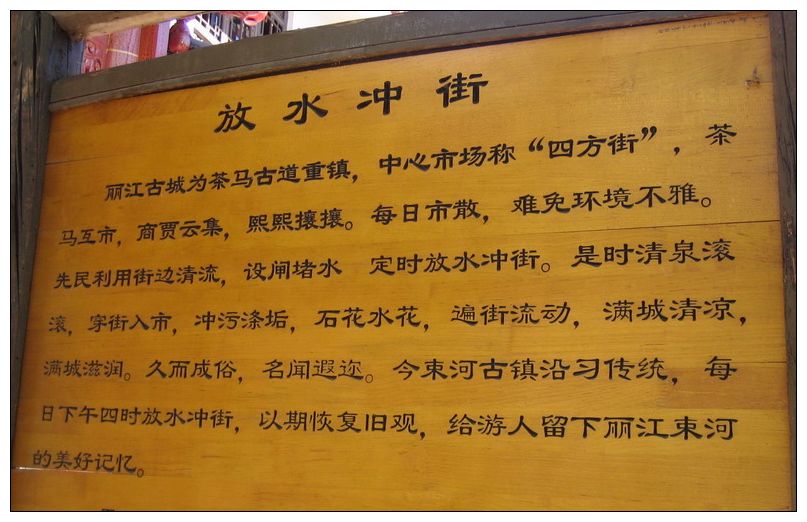 放水冲街
丽江古城为茶马古道重镇，中心市场称“四方街”，茶
马互市，商贾云集，熙熙攘攘。每日市散，难免环境不雅。
先民利用街边清流，设闸堵水 定时放水冲街。是时清泉滚
滚，穿街入市，冲污涤垢，石花水花，遍街流动，满城清凉，
满城滋润。久而成俗，名闻遐迩。今束河古镇沿习传统，每
日下午四时放水冲街，以期恢复旧观，给游人留下丽江束河
的美好记忆。